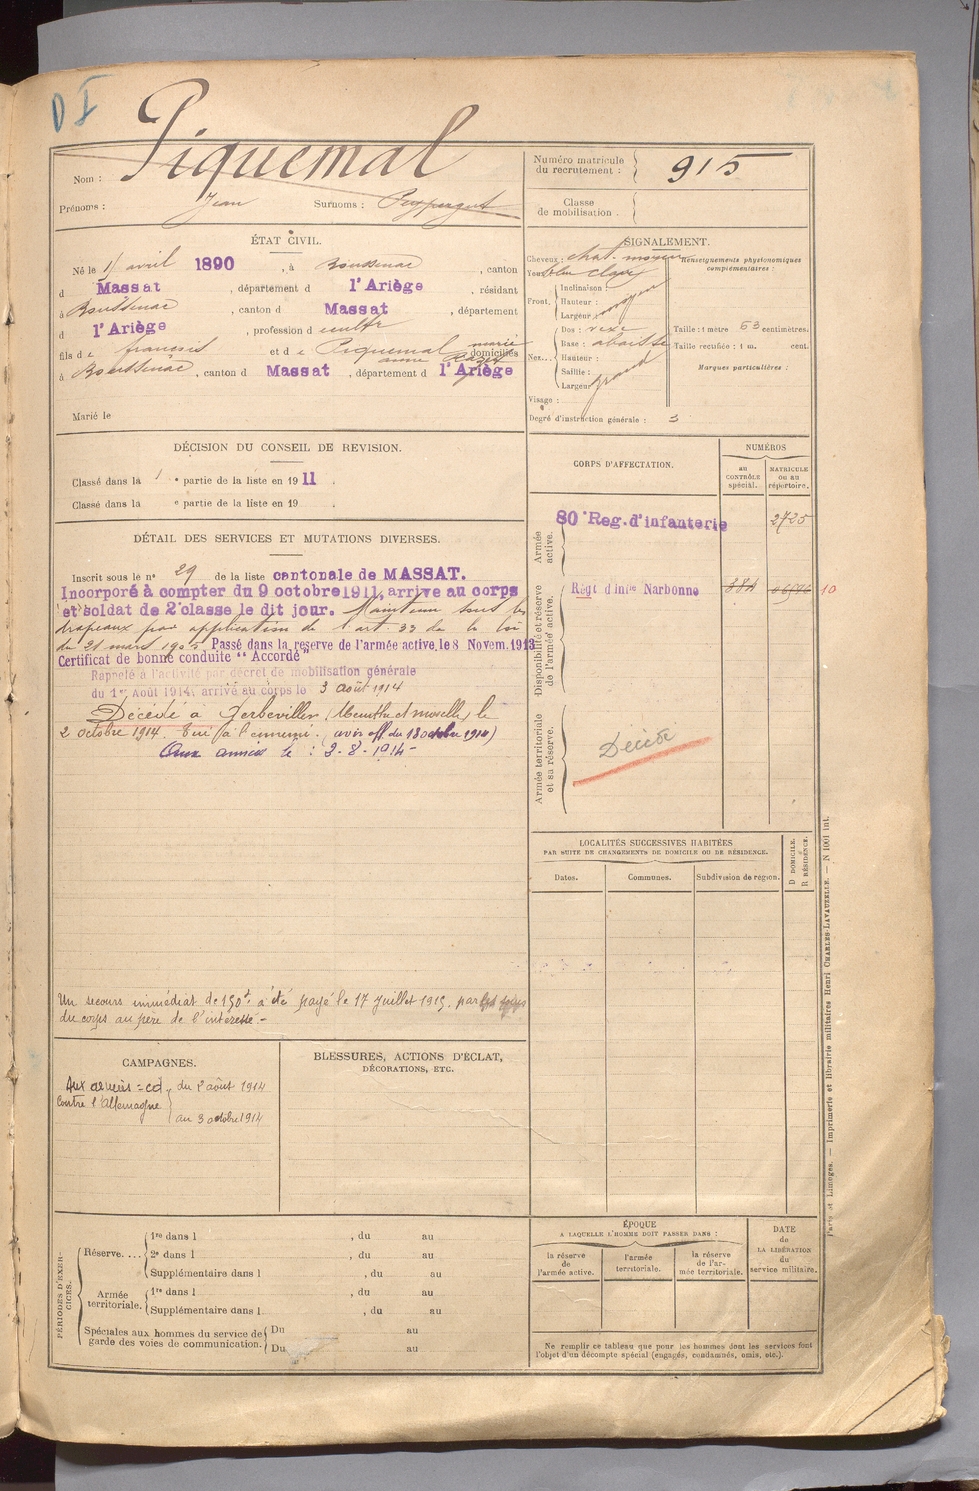 D I
Nom : Piquemal
Prénoms : Jean Surnoms :
Numéro matricule
du recrutement : 915
Classe
de mobilisation .
ÉTAT CIVIL.
Né le 1 avril 1890 , à Boussenac , canton
d Massat , département d l'Ariège , résidant
à Boussenac , canton d Massat , département
d l'Ariège , profession d cultr
fils de françois et de Piquemal marie
anne domiciliés
à Boussenac , canton d Massat , département d l'Ariège
Marié le
SIGNALEMENT.
Cheveux : chat. moyen
Yeux bleu clair
Front. Inclinaison :
Hauteur : moyen
Largeur :
Nez... Dos : vexe
Base : abaissée
Hauteur :
Saillie : grand
Largeur
Visage :
Renseignements physionomiques
complémentaires :
Taille : 1 mètre 63 centimètres.
Taille rectifiée : 1 m. cent.
Marques particulières :
Degré d'instruction générale : 3
DÉCISION DU CONSEIL DE REVISION.
Classé dans la 1 e partie de la liste en 1911 .
Classé dans la e partie de la liste en 19 .
DÉTAIL DES SERVICES ET MUTATIONS DIVERSES.
Inscrit sous le n° 29 de la liste cantonale de MASSAT.
Incorporé à compter du 9 octobre 1911, arrive au corps
et soldat de 2e classe le dit jour. Maintenu sous les
drapeaux par application de l'art 33 de la loi
du 21 mars 1905 Passé dans la réserve de l'armée active, le 8 Novem. 1913
Certificat de bonne conduite "Accordé"
Rappelé à l'activité par décret de mobilisation générale
du 1er Août 1914, arrivé au corps le 3 août 1914
Décédé à Gerbeviller (Meurthe et moselle) le
2 octobre 1914. Tué à l'ennemi. (avis off. du 18 octobre 1914)
Aux armées le : 2-8-1914-
Un secours immédiat de 150f a été payé le 17 Juillet 1915. par
du corps au père de l'intéressé -
CORPS D'AFFECTATION.
NUMÉROS
au
CONTRÔLE
spécial.
MATRICULE
OU AU
répertoire.
Armée
active.
80e Reg. d'infanterie 2725
Disponibilité et réserve
de l'armée active.
Régt d'infie Narbonne 884 10
Armée territoriale
et sa réserve.
Décédé
LOCALITÉS SUCCESSIVES HABITÉES
PAR SUITE DE CHANGEMENTS DE DOMICILE OU DE RÉSIDENCE.
Dates.
Communes.
Subdivision de région.
D DOMICILE.
R RÉSIDENCE.
CAMPAGNES.
Aux armées du 2 août 1914
Contre l'Allemagne
au 3 octobre 1914
BLESSURES, ACTIONS D'ÉCLAT,
DÉCORATIONS, ETC.
PÉRIODES D'EXER-
CICES.
Réserve.... 1re dans l , du au
2e dans l , du au
Supplémentaire dans l , du au
Armée
territoriale. 1re dans l , du au
Supplémentaire dans l , du au
Spéciales aux hommes du service de
garde des voies de communication. Du au
Du au
ÉPOQUE
A LAQUELLE L'HOMME DOIT PASSER DANS :
la réserve
de
l'armée active.
l'armée
territoriale.
la réserve
de l'ar-
mée territoriale.
DATE
de
LA LIBÉRATION
du
service militaire.
Ne remplir ce tableau que pour les hommes dont les services font
l'objet d'un décompte spécial (engagés, condamnés, omis, etc.).
Paris et Limoges. — Imprimerie et librairie militaires Henri CHARLES-LAVAUZELLE. — N 1001 int.